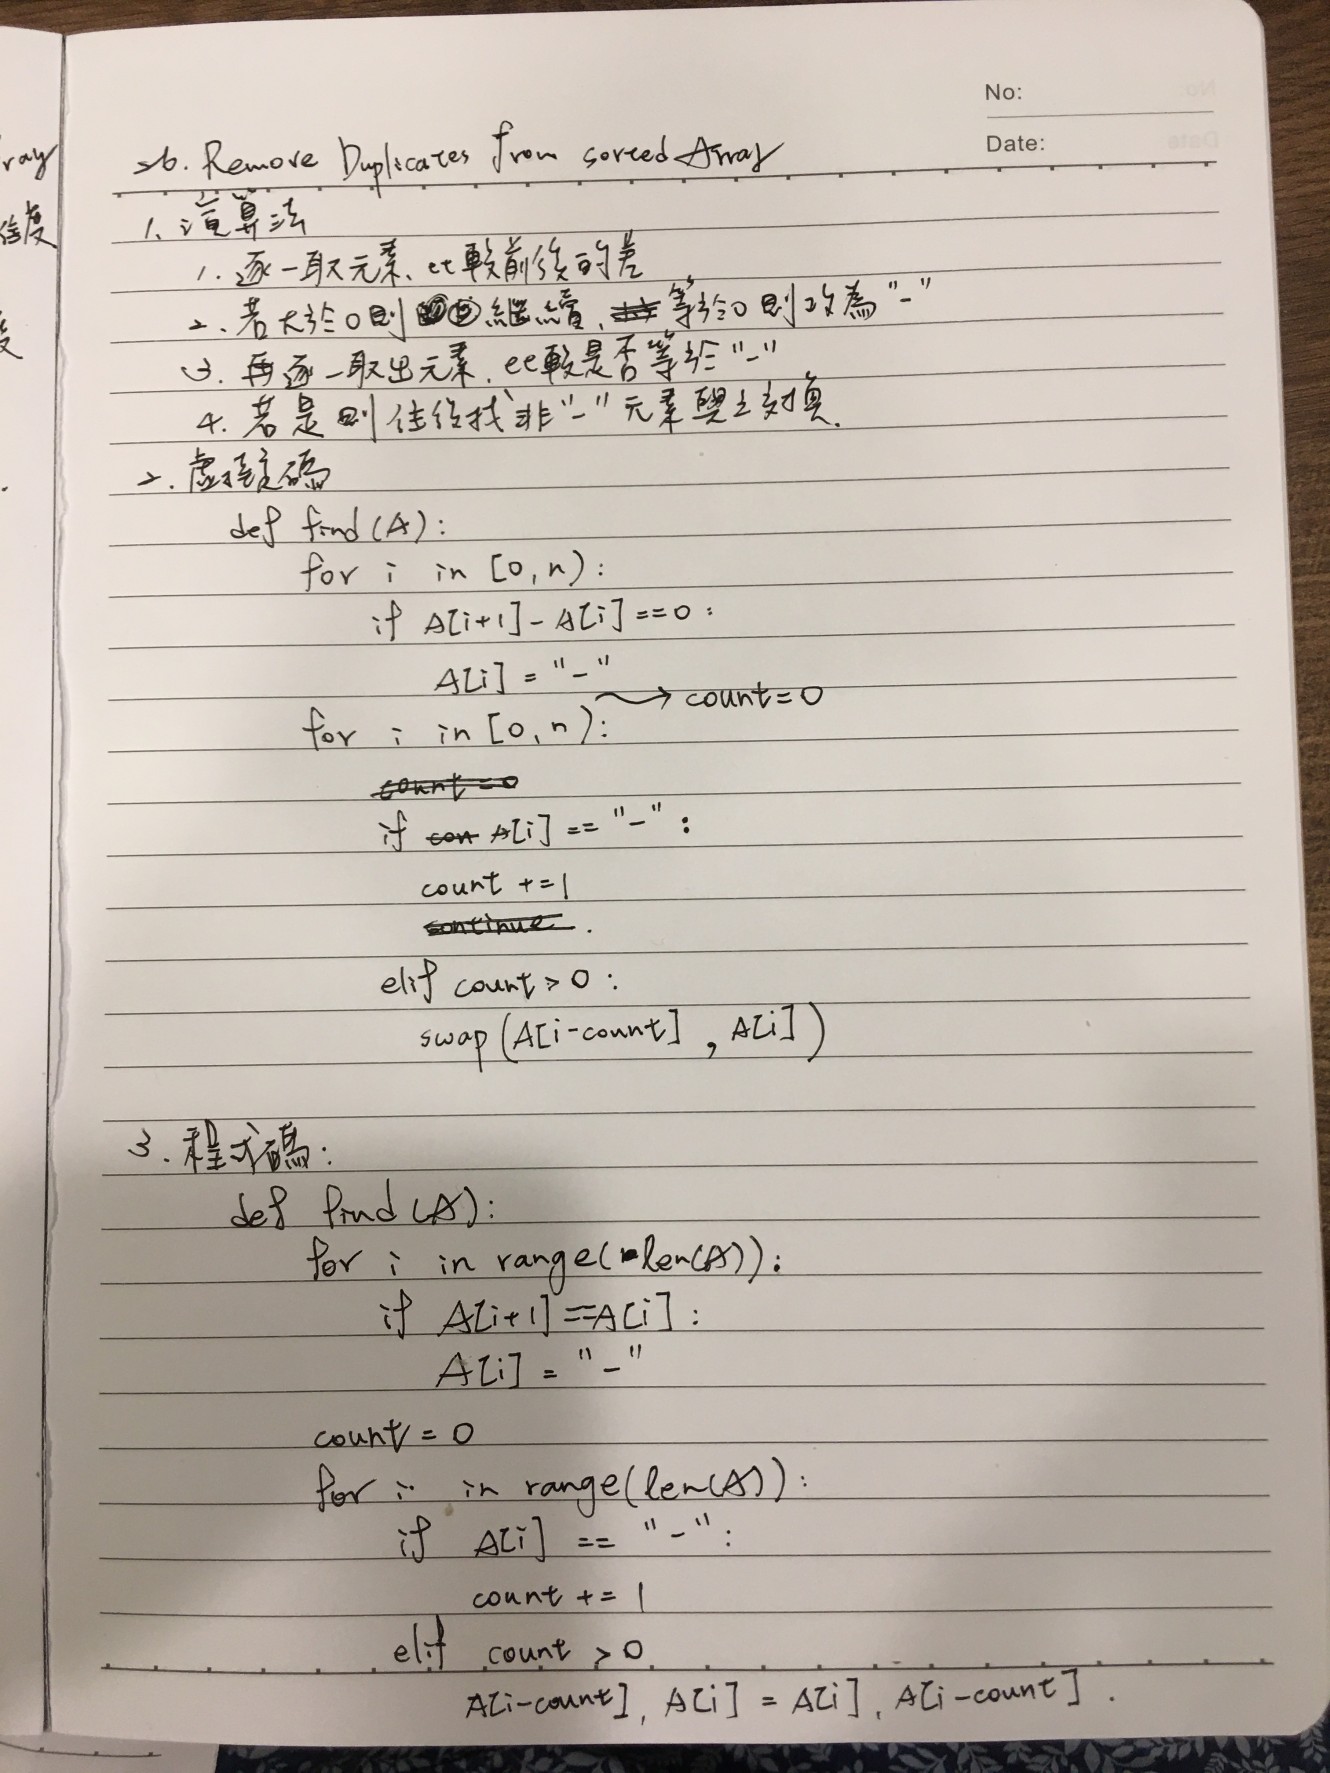 ray
No:
Date:
26. Remove Duplicates from sorted Array
1. 演算法
1. 逐一取元素、比較前後的差
2. 若大於0則繼續、等於0則改為"-"
3. 再逐一取出元素、比較是否等於"-"
4. 若是則往後找非"-"元素與之對換.
2. 虛擬碼
def find(A):
for i in [0,n):
if A[i+1]-A[i]==0:
A[i] = "-"
→ count=0
for i in [0,n):
count=0
if con A[i] == "-":
count +=1
continue.
elif count > 0:
swap(A[i-count], A[i])
3. 程式碼:
def find(A):
for i in range(len(A)):
if A[i+1]==A[i]:
A[i] = "-"
count = 0
for i in range(len(A)):
if A[i] == "-":
count += 1
elif count > 0
A[i-count], A[i] = A[i], A[i-count].